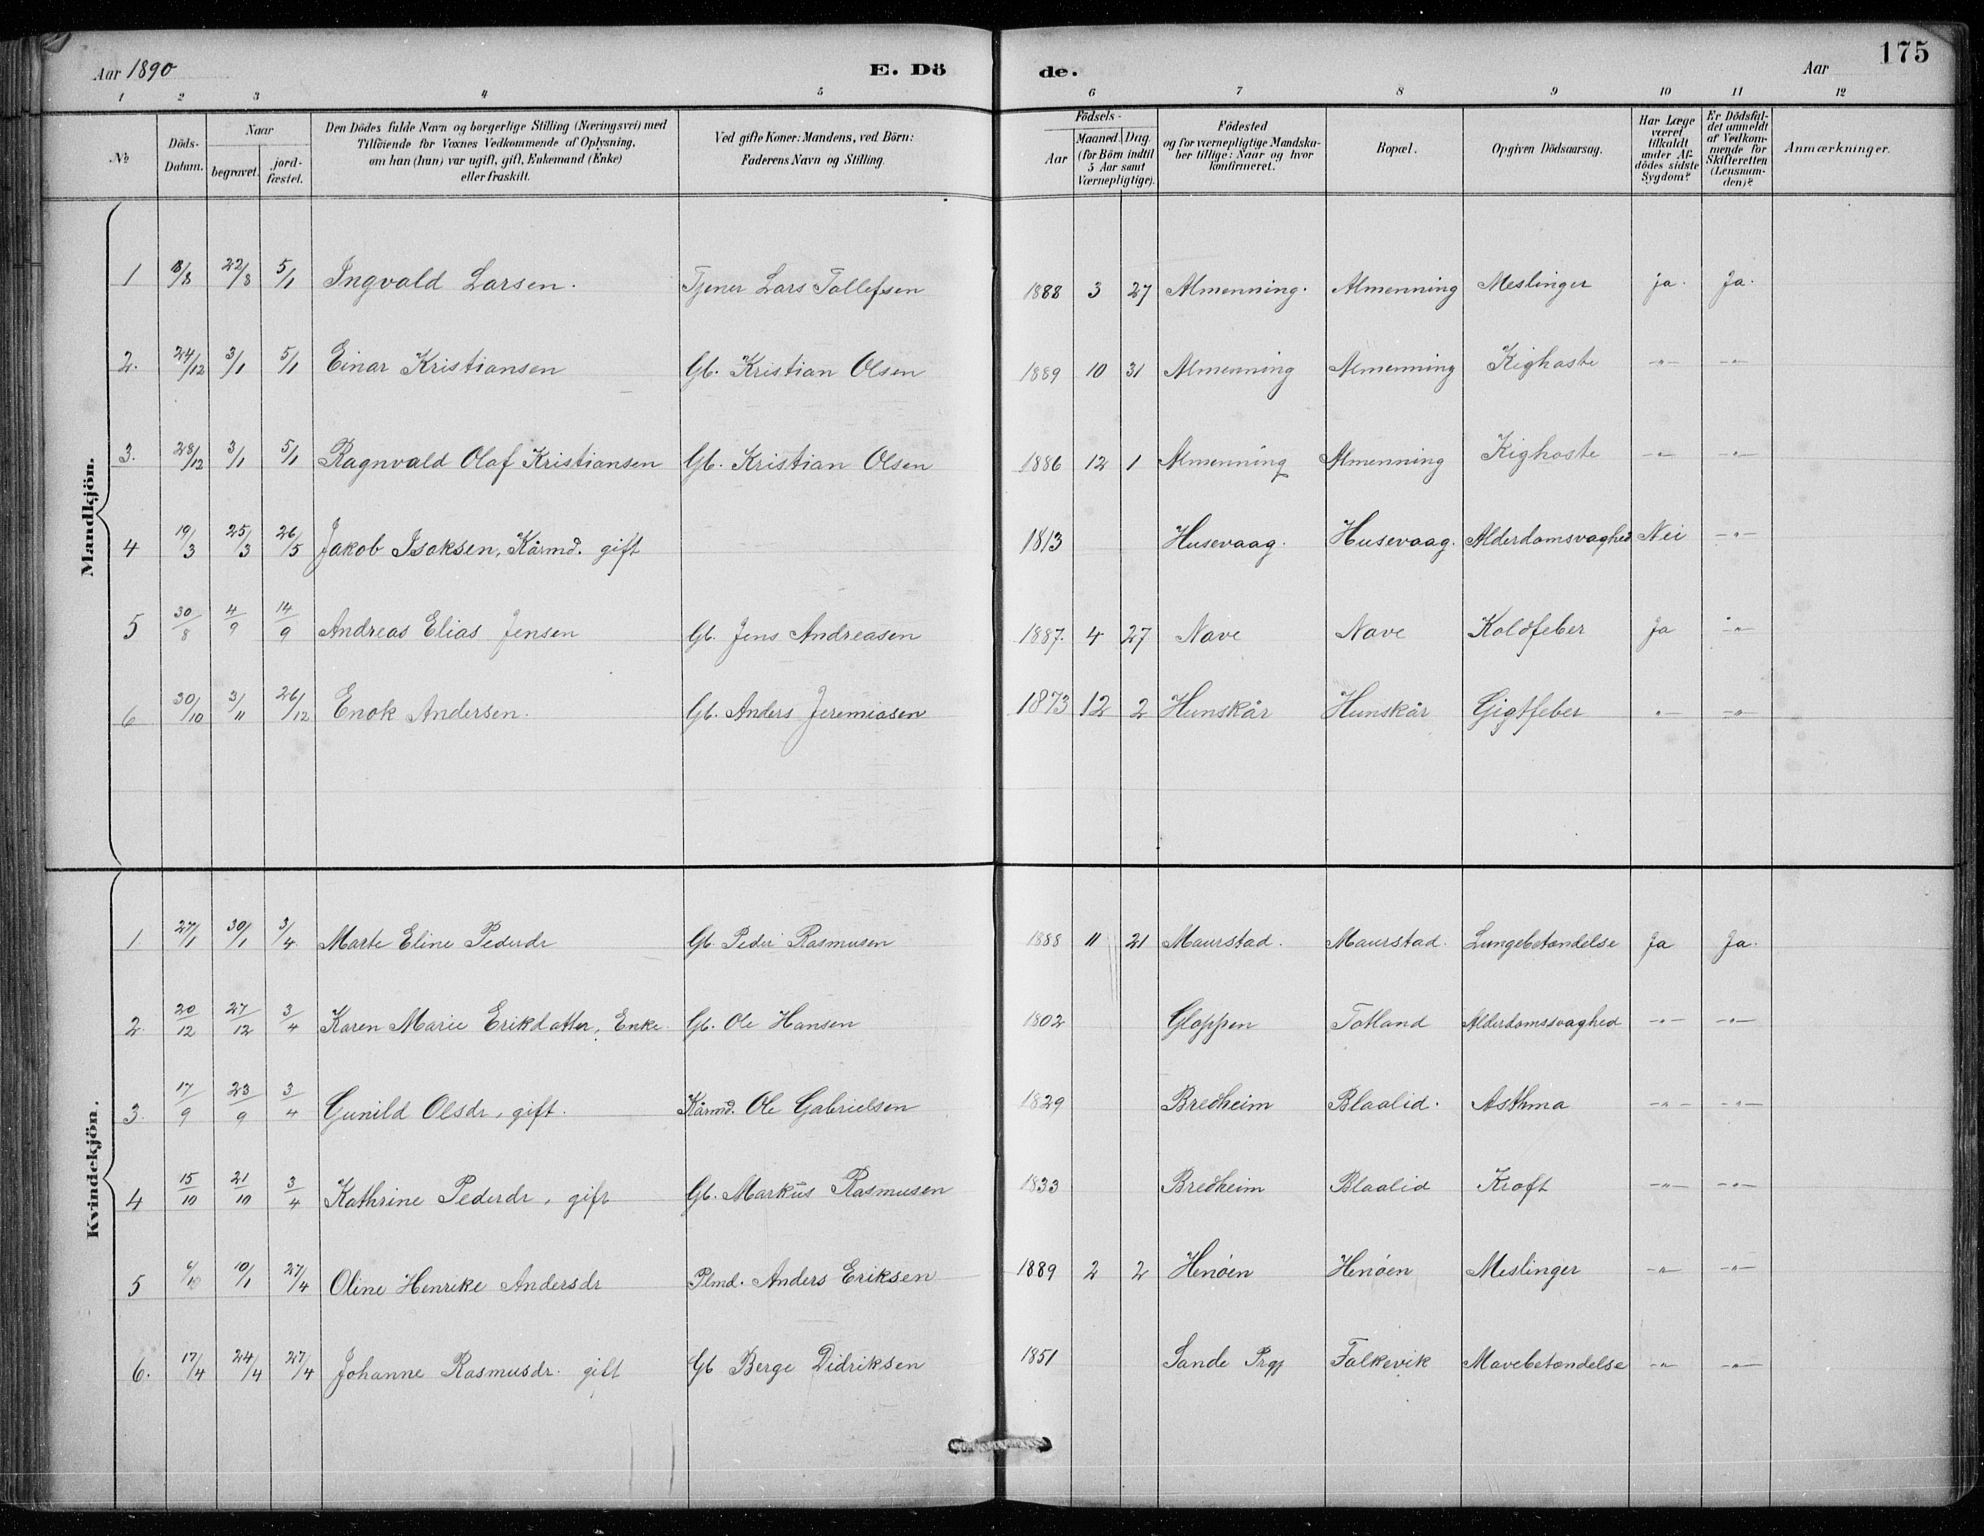 Aar 1890 E. Dö de. Aar 175
1 2 3 4 5 6 7 8 9 10 11 12
№ Döds-Datum. Naar begravet. jordfæstet. Den Dödes fulde Navn og borgerlige Stilling (Næringsvei) med Tilföiende for Voxnes Vedkommende af Oplysning, om han (hun) var ugift, gift, Enkemand (Enke) eller fraskilt. Ved gifte Koner: Mandens, ved Börn: Faderens Navn og Stilling. Födsels- Aar Maaned. Dag. (for Börn indtil 5 Aar samt Værnepligtige). Födested og for værnepligtige Mandskaber tillige: Naar og hvor konfirmeret. Bopæl. Opgiven Dödsaarsag. Har Læge været tilkaldt under Afdödes sidste Sygdom? Er Dödsfaldet anmeldt af Vedkommende for Skifteretten (Lensmanden)? Anmærkninger.
Mandkjön.
1 8/8 22/8 5/1 Ingvald Larsen. Tjener Lars Tollefsen 1888 3 27 Almenning. Almenning Meslinger ja. Ja.
2. 24/12 3/1 5/1 Einar Kristiansen Gb. Kristian Olsen 1889 10 31 Almenning Almenning Kighoste -"- -"-
3. 28/12 3/1 5/1 Ragnvald Olaf Kristiansen Gb. Kristian Olsen 1886 12 1 Almenning Almenning Kighoste -"- -"-
4 19/3 25/3 26/5 Jakob Isaksen, Kårmd. gift 1813 Husevaag. Husevaag. Alderdomsvaghed Nei -"-
5 30/8 4/9 14/9 Andreas Elias Jensen Gb. Jens Andreasen 1887. 4 27 Nave Nave Koldfeber Ja -"-
6 30/10 3/11 26/12 Enok Andersen. Gb. Anders Jeremiasen 1873 12 2 Hunskår Hunskår Gigtfeber -"- -"-
Kvindekjön.
1 27/1 30/1 3/4. Marte Eline Pedersdr Gb. Peder Rasmusen 1888 11 21 Maurstad. Maurstad. Lungebetændelse Ja Ja.
2. 20/12 27/12 3/4 Karen Marie Erikdatter, Enke Gb. Ole Hansen 1802 Gloppen Totland Alderdomssvaghed -"- -"-
3. 17/9 23/9 3/4 Gunild Olsdr, gift. Kårmd. Ole Gabrielsen 1829 Bredheim Blaalid. Asthma -"- -"-
4 15/10 21/10 3/4 Kathrine Pedersdr, gift Gb. Markus Rasmusen 1833 Bredheim Blaalid Kræft -"- -"-
5 10/1 27/4 Oline Henrike Andersdr Plmd. Anders Eriksen 1889 2 2 Henøen Henøen Meslinger -"- -"-
6. 17/4 24/4 27/4 Johanne Rasmusdr. gift Gb Berge Didriksen 1851 Sande Prgj Falkevik Mavebetændelse -"- -"-